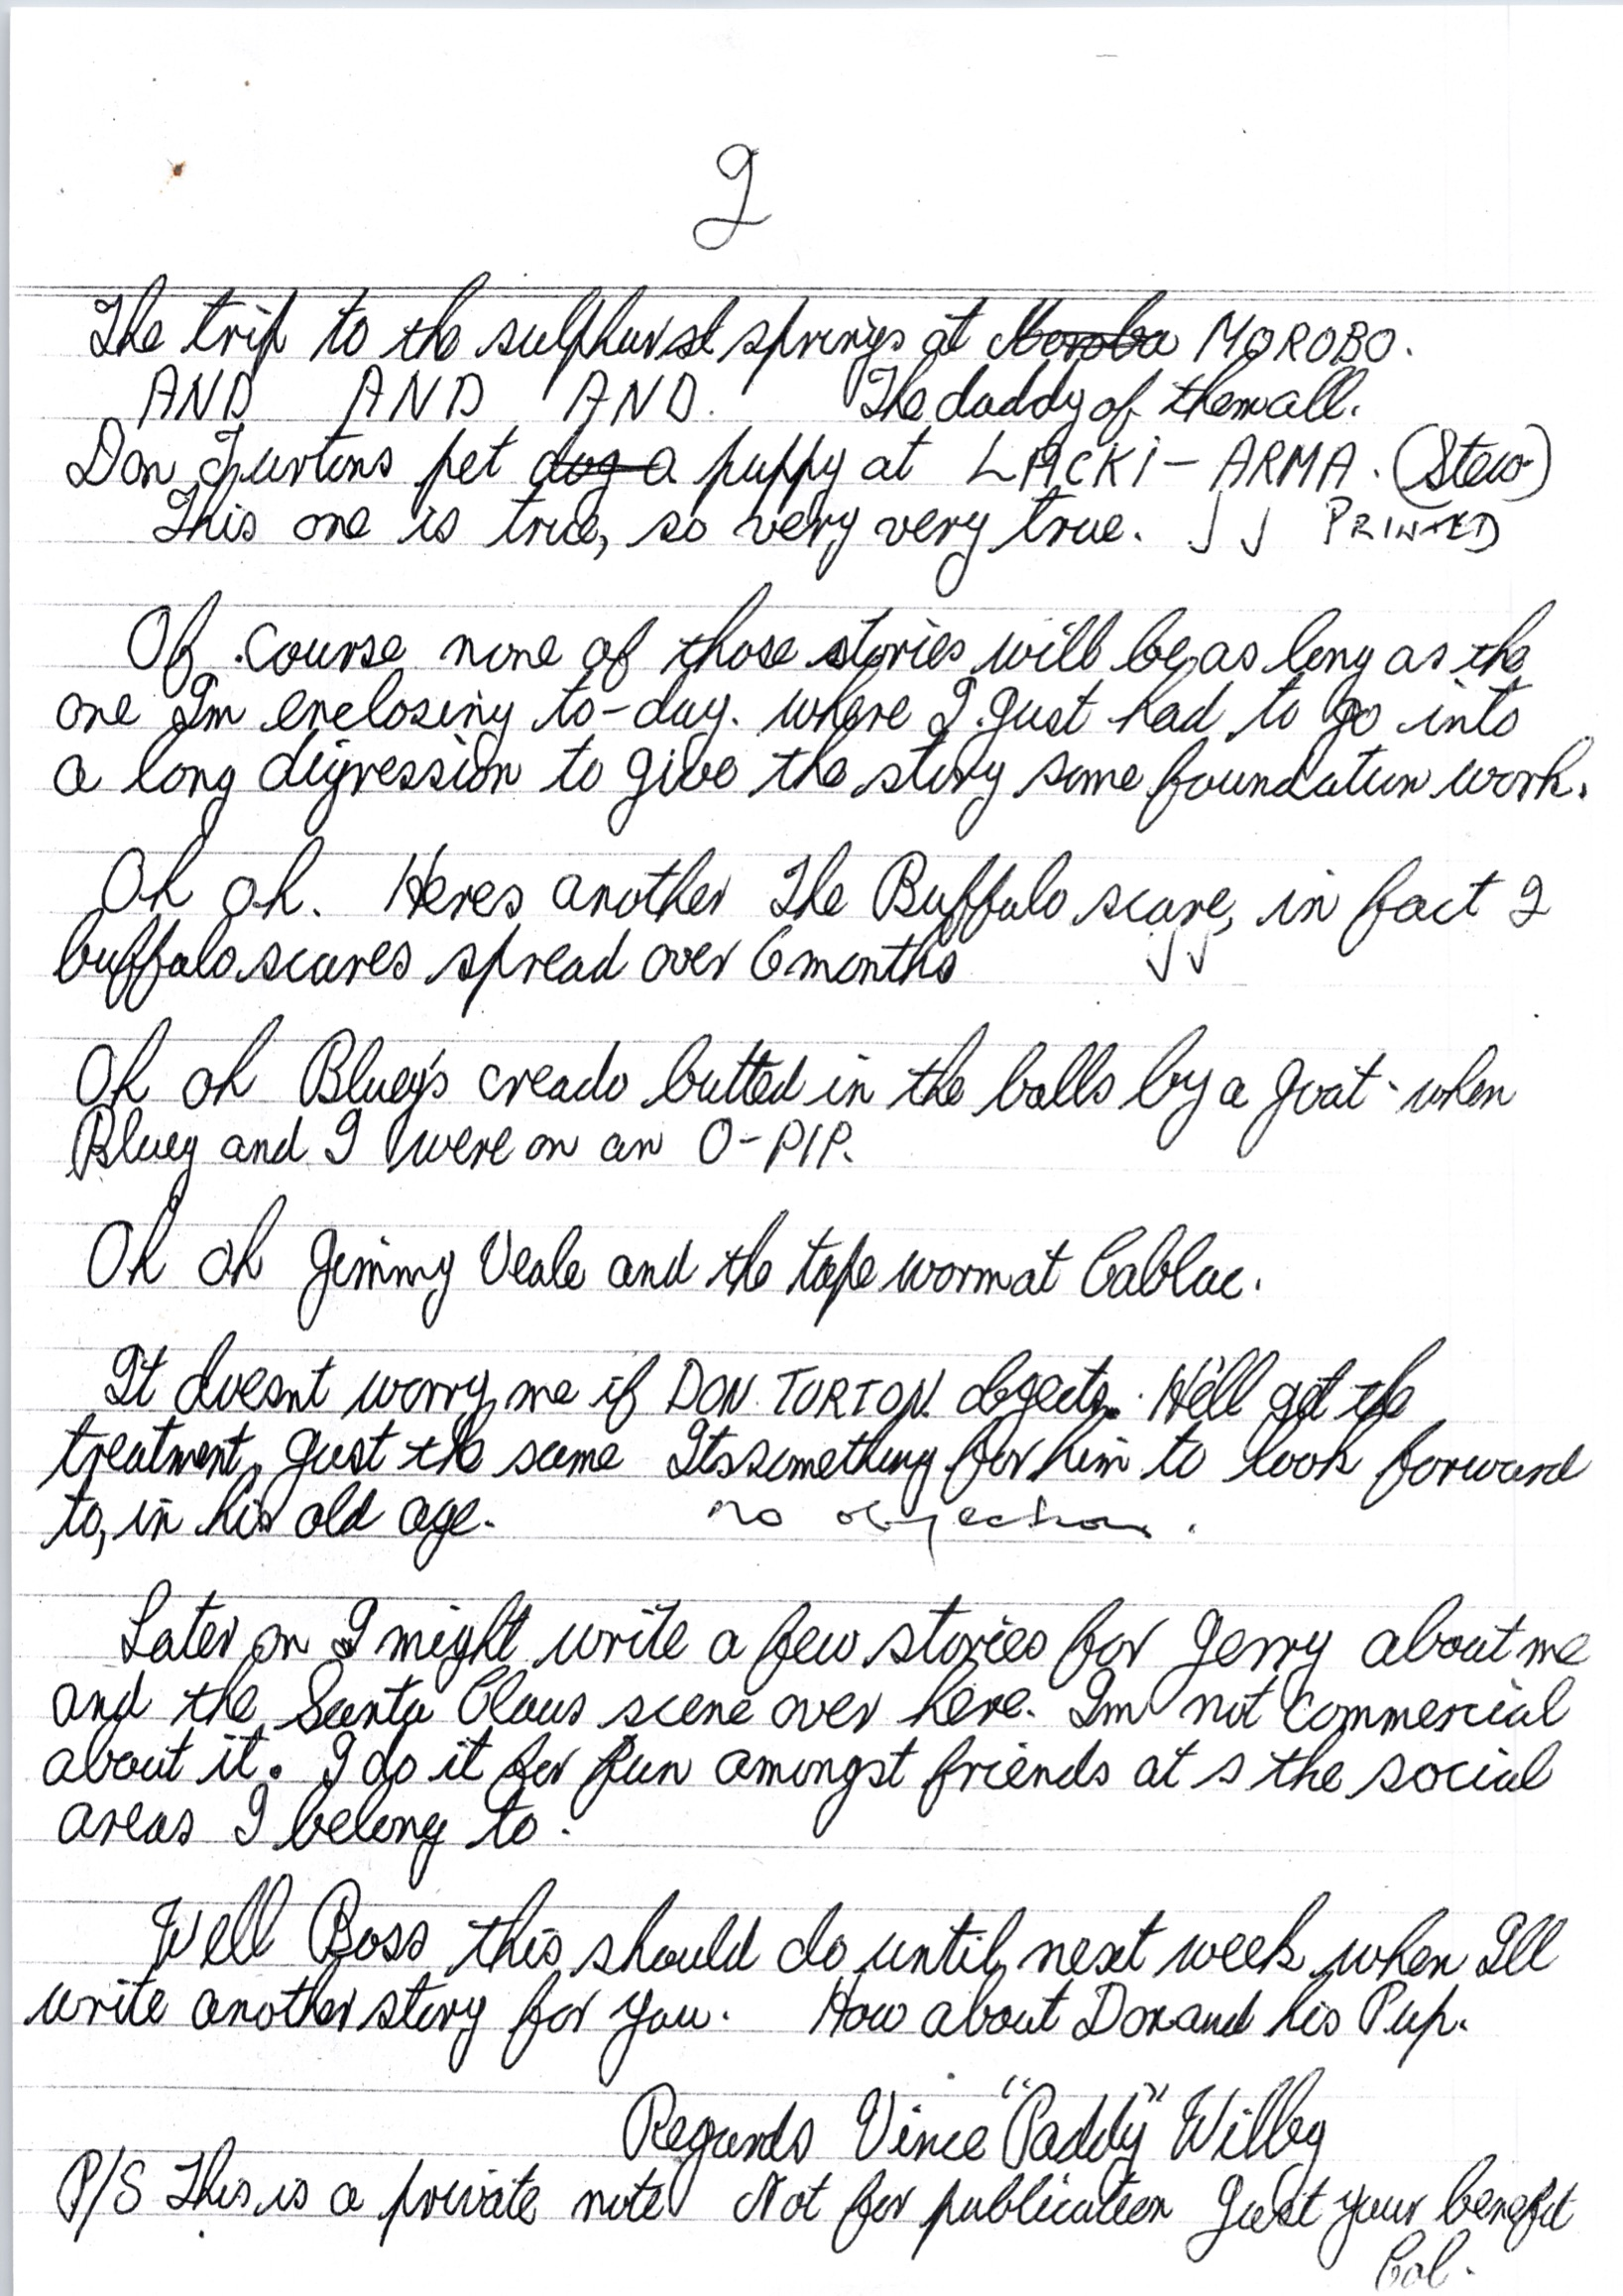 2
The trip to the sulphurst springs at Moroba MOROBO.
AND AND AND. The daddy of them all.
Don Turtons pet dog a puppy at LACKI-ARMA. (Stew)
This one is true, so very very true. √ √ PRINTED
Of course none of those stories will be as long as the
one Im enclosing to-day. where I just had to go into
a long digression to give the story some foundation work.
Oh oh. Heres another The Buffalo scare, in fact 2
buffalo scares spread over 6 months √√
Oh oh Bluey's creado butted in the balls by a goat - when
Bluey and I were on an O-PIP.
Oh oh Jimmy Veale and the tape worm at Cablac.
It doesnt worry me if DON. TURTON. objects. He'll get the
treatment, just the same Its something for him to look forward
to, in his old age. no objection.
Later on I might write a few stories for Gerry about me
and the Santa Claus scene over here. Im not commercial
about it. I do it for fun amongst friends at s the social
areas I belong to.
Well Boss this should do until next week when Ill
write another story for you. How about Don and his Pup.
Regards Vince "Paddy" Wilby
P/S This is a private note Not for publication Just your benefit
Col.